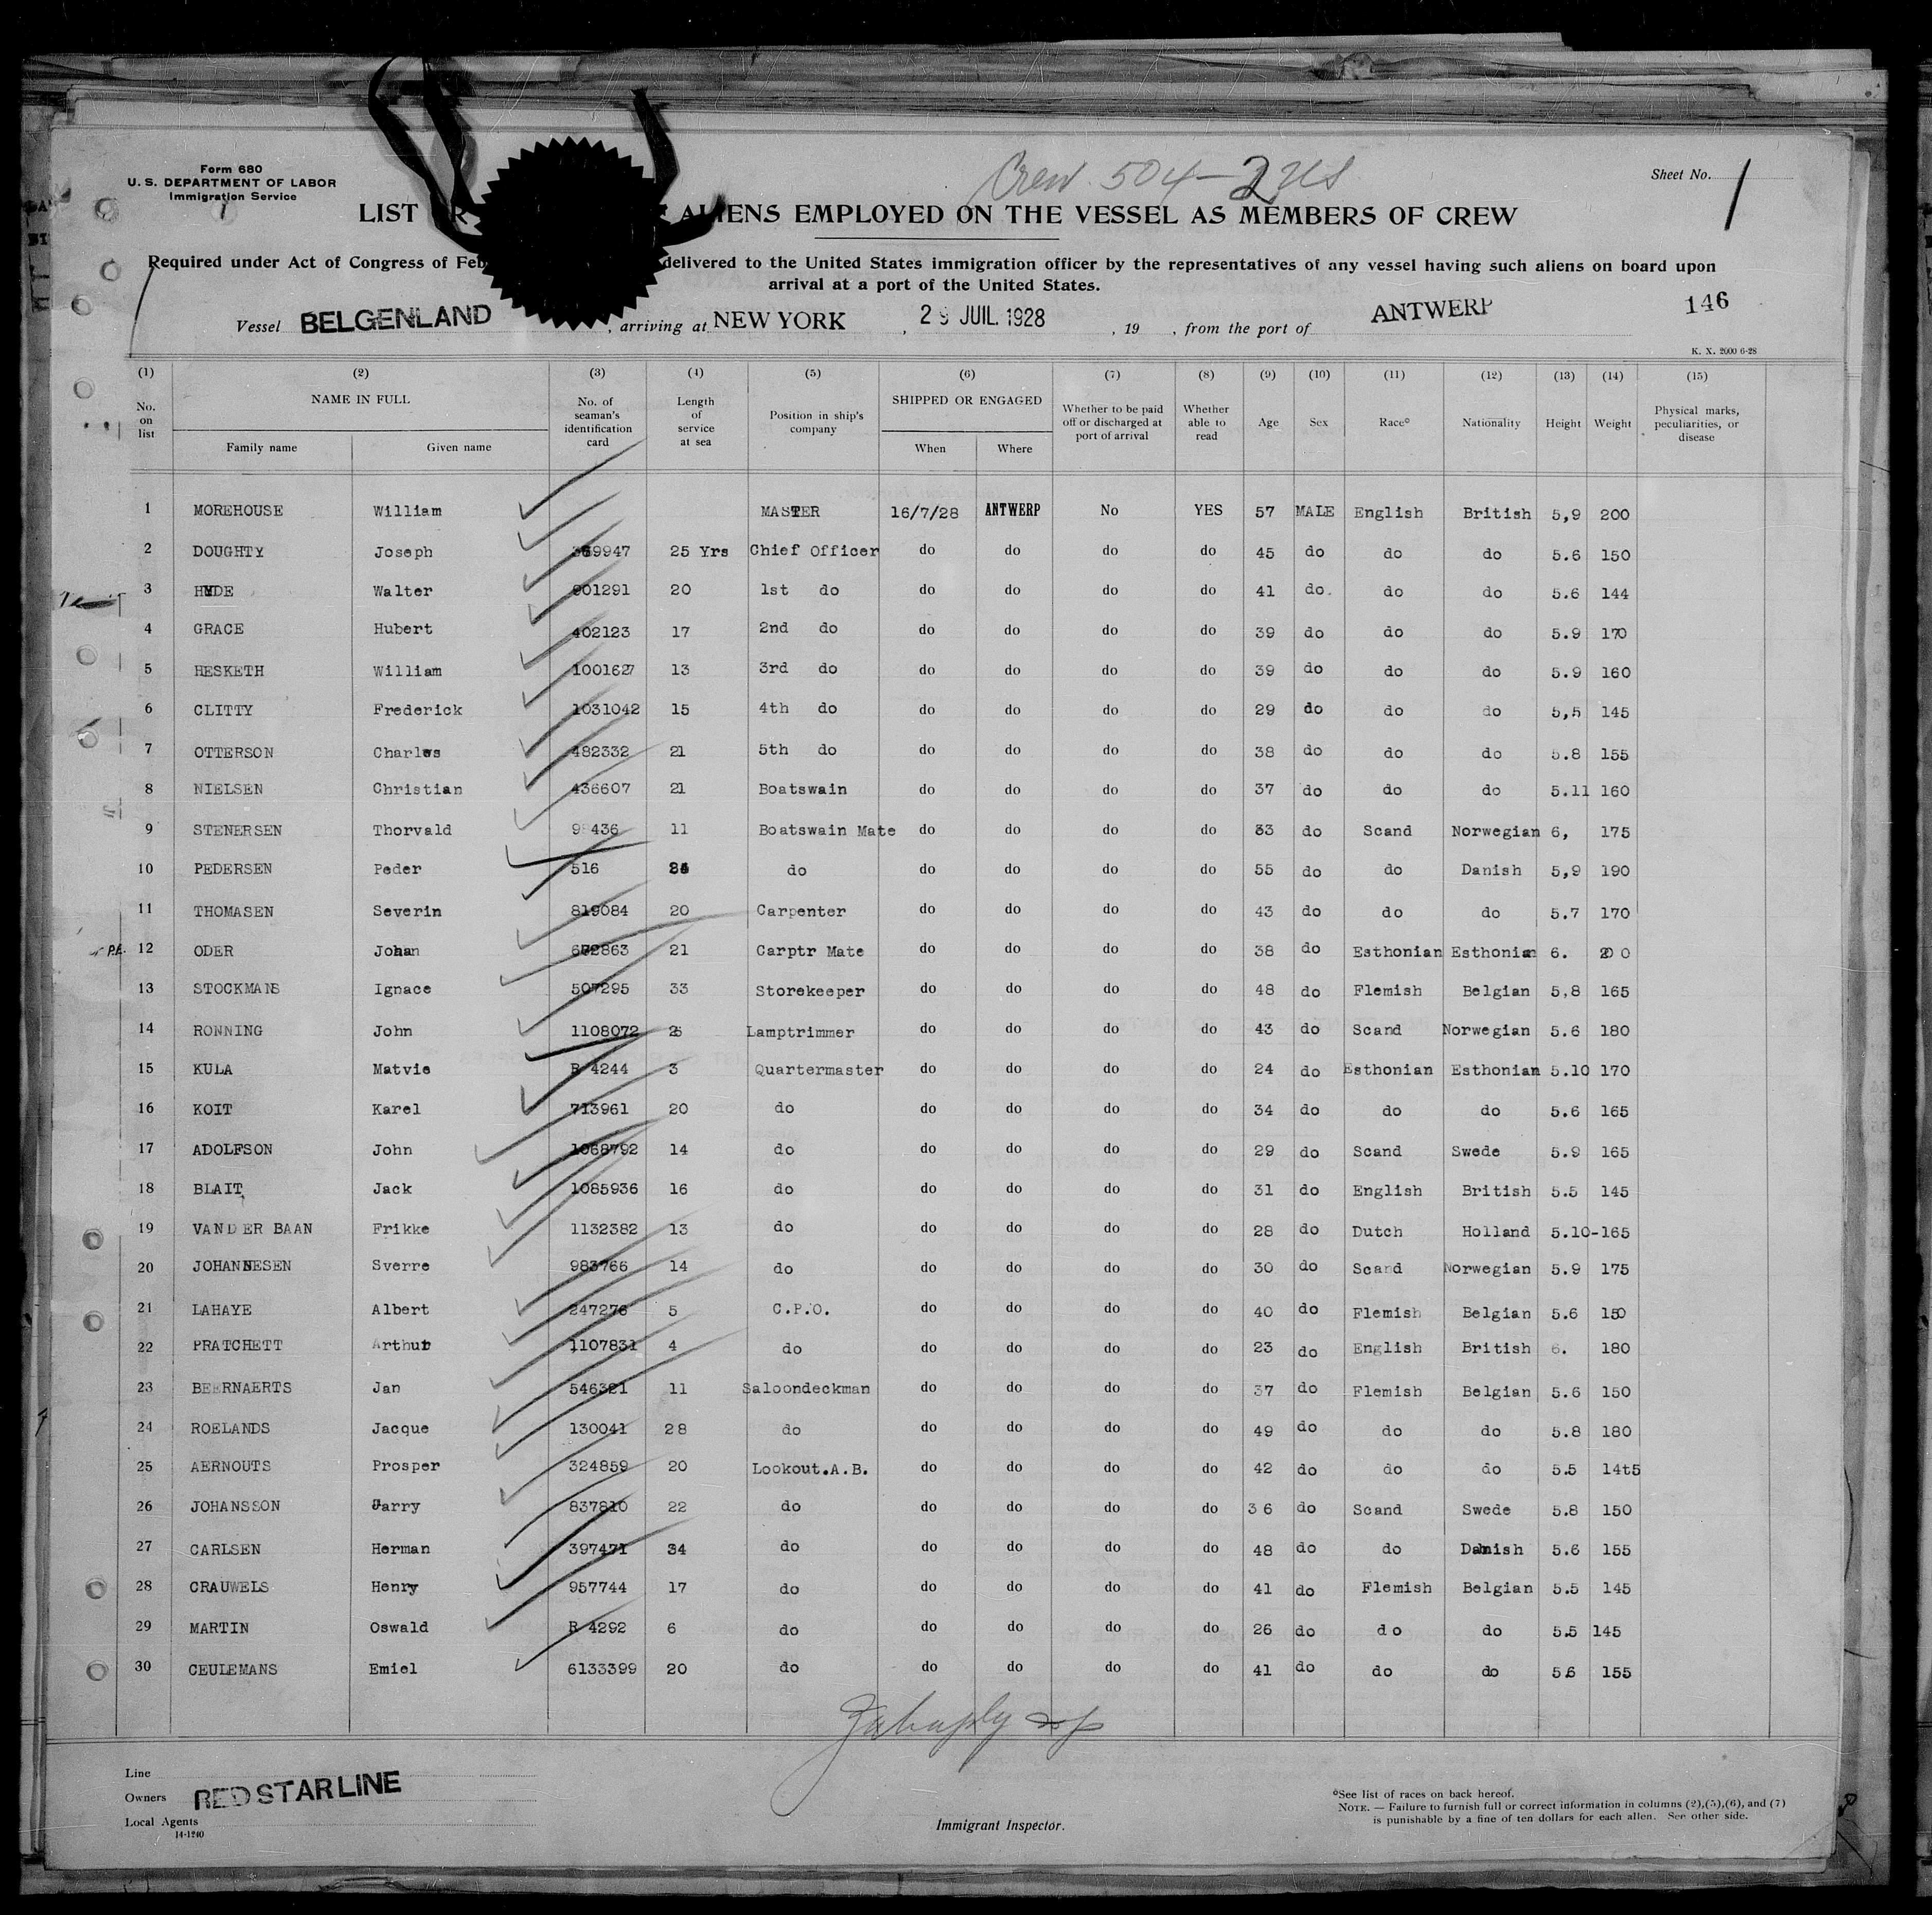 Crew 504 - 2 US
Form 680
U. S. DEPARTMENT OF LABOR
Immigration Service
Sheet No. 1
LIST OR ALIENS EMPLOYED ON THE VESSEL AS MEMBERS OF CREW
Required under Act of Congress of Feb delivered to the United States immigration officer by the representatives of any vessel having such aliens on board upon
arrival at a port of the United States.
Vessel BELGENLAND , arriving at NEW YORK , 29 JUIL. 1928 , 19 , from the port of ANTWERP 146
K. X. 2000 6-28
(1) (2) (3) (4) (5) (6) (7) (8) (9) (10) (11) (12) (13) (14) (15)
No. on list NAME IN FULL Family name Given name No. of seaman's identification card Length of service at sea Position in ship's company SHIPPED OR ENGAGED When Where Whether to be paid off or discharged at port of arrival Whether able to read Age Sex Race° Nationality Height Weight Physical marks, peculiarities, or disease
1 MOREHOUSE William MASTER 16/7/28 ANTWERP No YES 57 MALE English British 5,9 200
2 DOUGHTY Joseph 369947 25 Yrs Chief Officer do do do do 45 do do do 5.6 150
3 HYDE Walter 901291 20 1st do do do do do 41 do. do do 5.6 144
4 GRACE Hubert 402123 17 2nd do do do do do 39 do do do 5.9 170
5 HESKETH William 1001627 13 3rd do do do do do 39 do do do 5.9 160
6 CLITTY Frederick 1031042 15 4th do do do do do 29 do do do 5,5 145
7 OTTERSON Charles 482332 21 5th do do do do do 38 do do do 5.8 155
8 NIELSEN Christian 436607 21 Boatswain do do do do 37 do do do 5.11 160
9 STENERSEN Thorvald 11 Boatswain Mate do do do do 33 do Scand Norwegian 6, 175
10 PEDERSEN Peder 516 do do do do do 55 do do Danish 5,9 190
11 THOMASEN Severin 819084 20 Carpenter do do do do 43 do do do 5.7 170
12 ODER Johan 21 Carptr Mate do do do do 38 do Esthonian Esthonian 6. 200
13 STOCKMANS Ignace 507295 33 Storekeeper do do do do 48 do Flemish Belgian 5,8 165
14 RONNING John 1108072 Lamptrimmer do do do do 43 do Scand Norwegian 5.6 180
15 KULA Matvie R 4244 3 Quartermaster do do do do 24 do Esthonian Esthonian 5.10 170
16 KOIT Karel 713961 20 do do do do do 34 do do do 5.6 165
17 ADOLFSON John 1068792 14 do do do do do 29 do Scand Swede 5.9 165
18 BLAIT Jack 1085936 16 do do do do do 31 do English British 5.5 145
19 VAN DER BAAN Frikke 1132382 13 do do do do do 28 do Dutch Holland 5.10-165
20 JOHANNESEN Sverre 983766 14 do do do do do 30 do Scand Norwegian 5.9 175
21 LAHAYE Albert 247276 5 C.P.O. do do do do 40 do Flemish Belgian 5.6 150
22 PRATCHETT Arthur 1107831 4 do do do do do 23 do English British 6. 180
23 BEERNAERTS Jan 546321 11 Saloondeckman do do do do 37 do Flemish Belgian 5.6 150
24 ROELANDS Jacque 130041 28 do do do do do 49 do do do 5.8 180
25 AERNOUTS Prosper 324859 20 Lookout.A.B. do do do do 42 do do do 5.5 14t5
26 JOHANSSON Harry 837810 22 do do do do do 36 do Scand Swede 5.8 150
27 CARLSEN Herman 397471 34 do do do do do 48 do do Danish 5.6 155
28 CRAUWELS Henry 957744 17 do do do do do 41 do Flemish Belgian 5.5 145
29 MARTIN Oswald R 4292 6 do do do do do 26 do do do 5.5 145
30 CEULEMANS Emiel 6133399 20 do do do do do 41 do do do 5.6 155
Line
Owners RED STAR LINE
Local Agents
14-1240
Immigrant Inspector.
°See list of races on back hereof.
NOTE. — Failure to furnish full or correct information in columns (2),(5),(6), and (7)
is punishable by a fine of ten dollars for each alien. See other side.